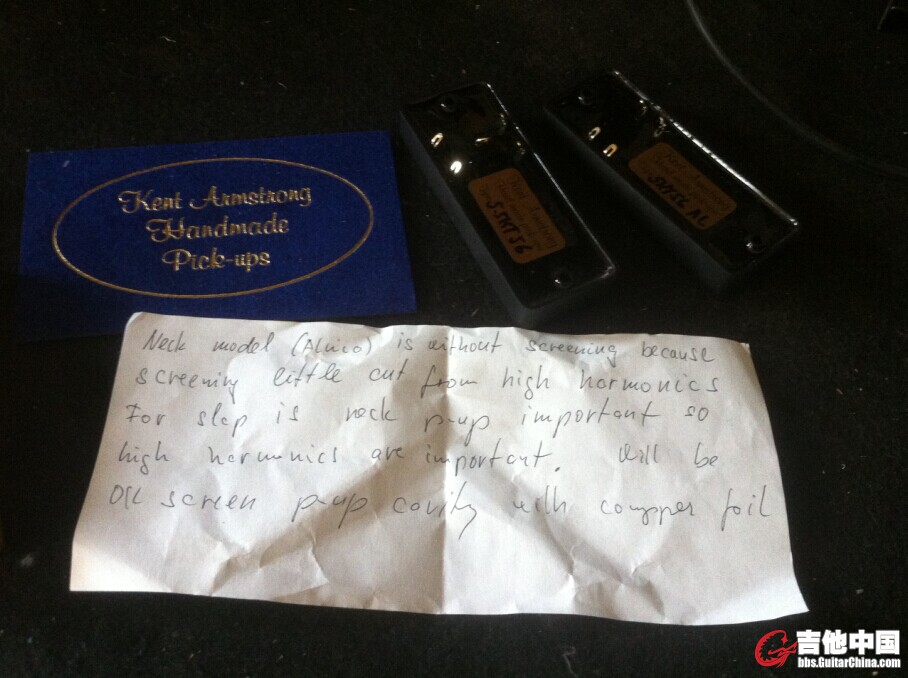 Kent Armstrong
Handmade
Pick-ups
Kent Armstrong
SSKT S6
SNT S6 AL
Neck model (Alnico) is without screening because
screening little cut from high harmonics
For slap is neck p-up important so
high harmonics are important. Will be
OK screen p-up cavity with compper foil
吉他中国
bbs.GuitarChina.com